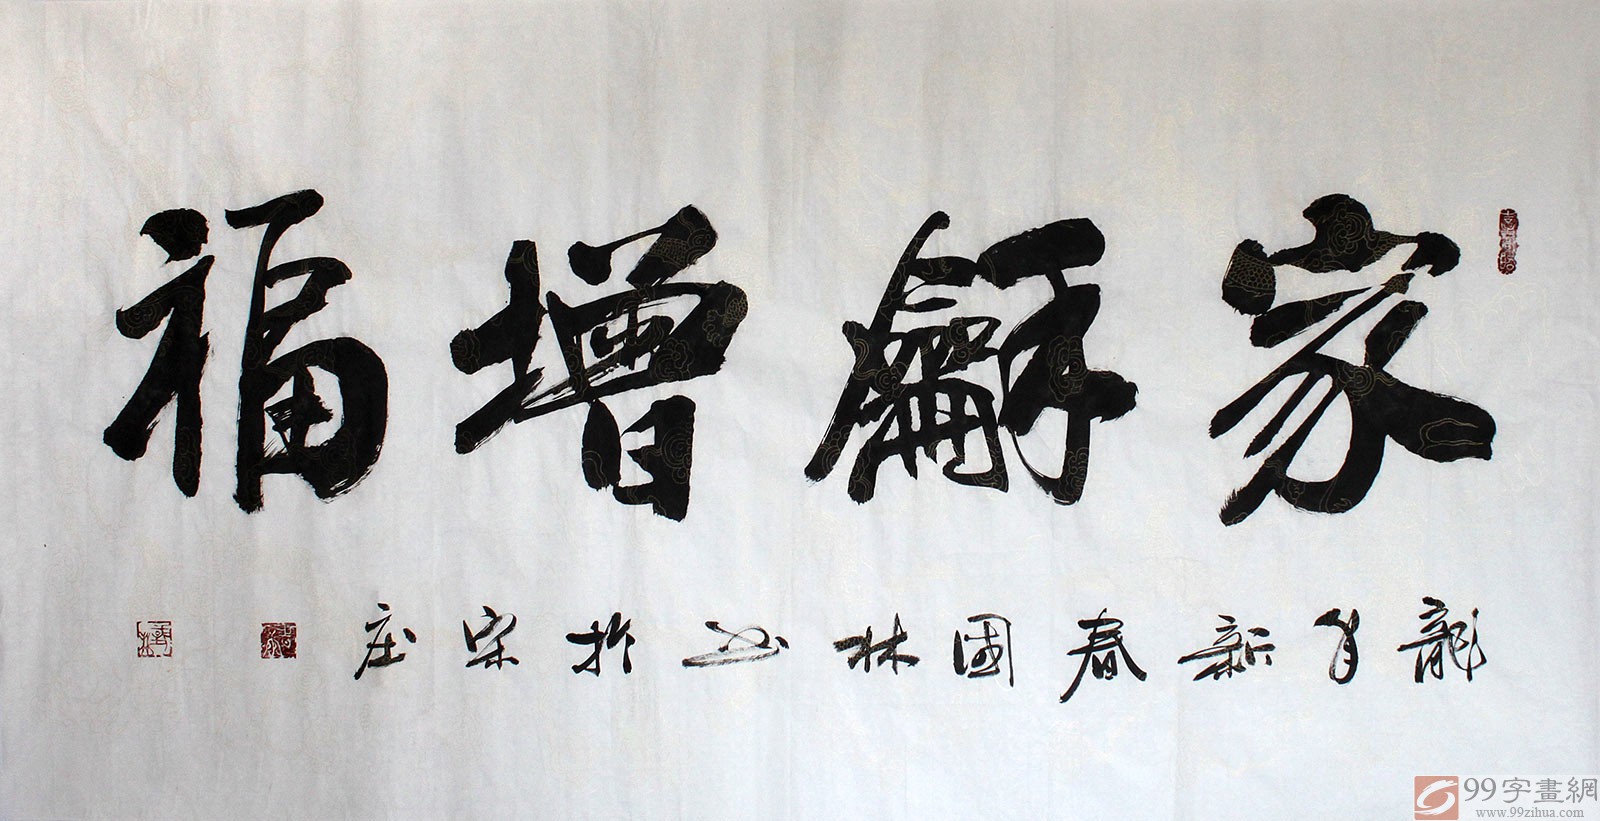 家龢增福
龍年新春國林书於宋庄
99字畫網
www.99zihua.com